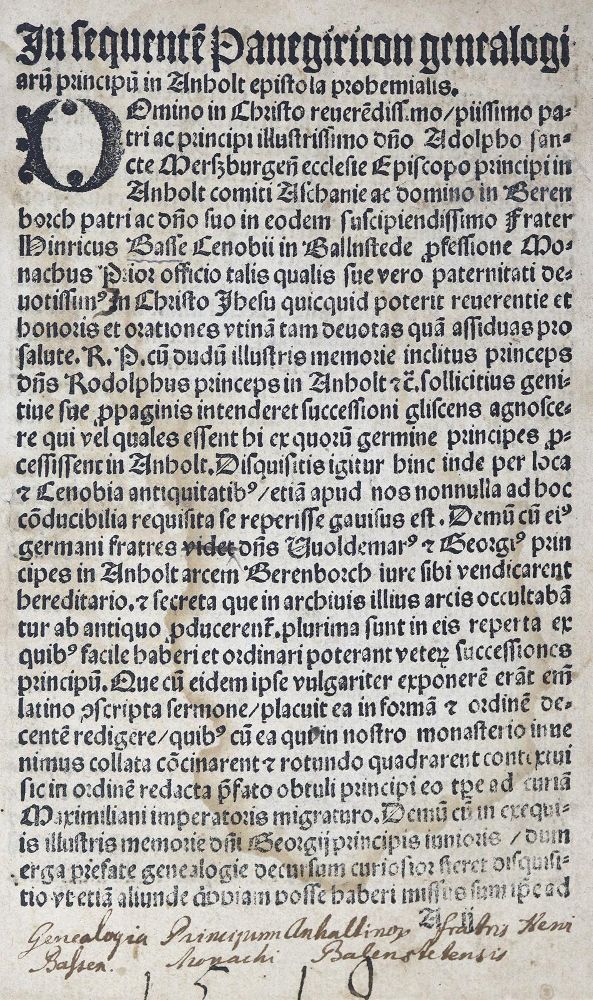 In sequentē Panegiricon genealogi
arū principū in Anholt epistola prohemialis.
DOmino in Christo reuerēdiss.mo/piissimo pa⸗
tri ac principi illustrissimo dño Adolpho san⸗
cte Merszburgeñ ecclesie Episcopo principi in
Anholt comiti Aschanie ac domino in Beren
borch patri ac dño suo in eodem suscipiendissimo Frater
Hinricus Basse Cenobii in Ballnstede ꝓfessione Mo⸗
nachus Prior officio talis qualis sue vero paternitati de⸗
uotissimꝰ In Christo Jhesu quicquid poterit reuerentie et
honoris et orationes vtinā tam deuotas quā assiduas pro
salute. R. P. cū dudū illustris memorie inclitus princeps
dñs Rodolphus princeps in Anholt ⁊c̄. sollicitius geni⸗
tiue sue ꝓpaginis intenderet successioni gliscens agnosce⸗
re qui vel quales essent hi ex quorū germine principes ꝓ⸗
cessissent in Anholt. Disquisitis igitur hinc inde per loca
⁊ Cenobia antiquitatibꝰ/etiā apud nos nonnulla ad hoc
cōducibilia requisita se reperisse gauisus est. Demū cū eiꝰ
germani fratres videt dñs Uuoldemarꝰ ⁊ Georgiꝰ prin
cipes in Anholt arcem Berenborch iure sibi vendicarent
hereditario. ⁊ secreta que in archiuis illius arcis occultabā
tur ab antiquo ꝓducerent̄. plurima sunt in eis reperta ex
quibꝰ facile haberi et ordinari poterant veteꝝ successiones
principū. Que cū eidem ipse vulgariter exponerē erāt em̄
latino ꝯscripta sermone/placuit ea in formā ⁊ ordinē de⸗
centē redigere/quibꝰ cū ea qui in nostro monasterio inue
nimus collata cōcinarent ⁊ rotundo quadrarent contextui
sic in ordinē redacta p̄fato obtuli principi eo tp̄e ad curiā
Maximiliani imperatoris migraturo. Demū cū in exequi⸗
is illustris memorie dñi Georgij principis iunioris / dum
erga prefate genealogie decursum curiosior fieret disquisi⸗
tio vt etiā aliunde copiam posse haberi missus sum ip̄e ad
A ij
Genealogia Principum Anhaltinor fratris Henri
Bassen Monachi Balenstetensis
1 5 1 9